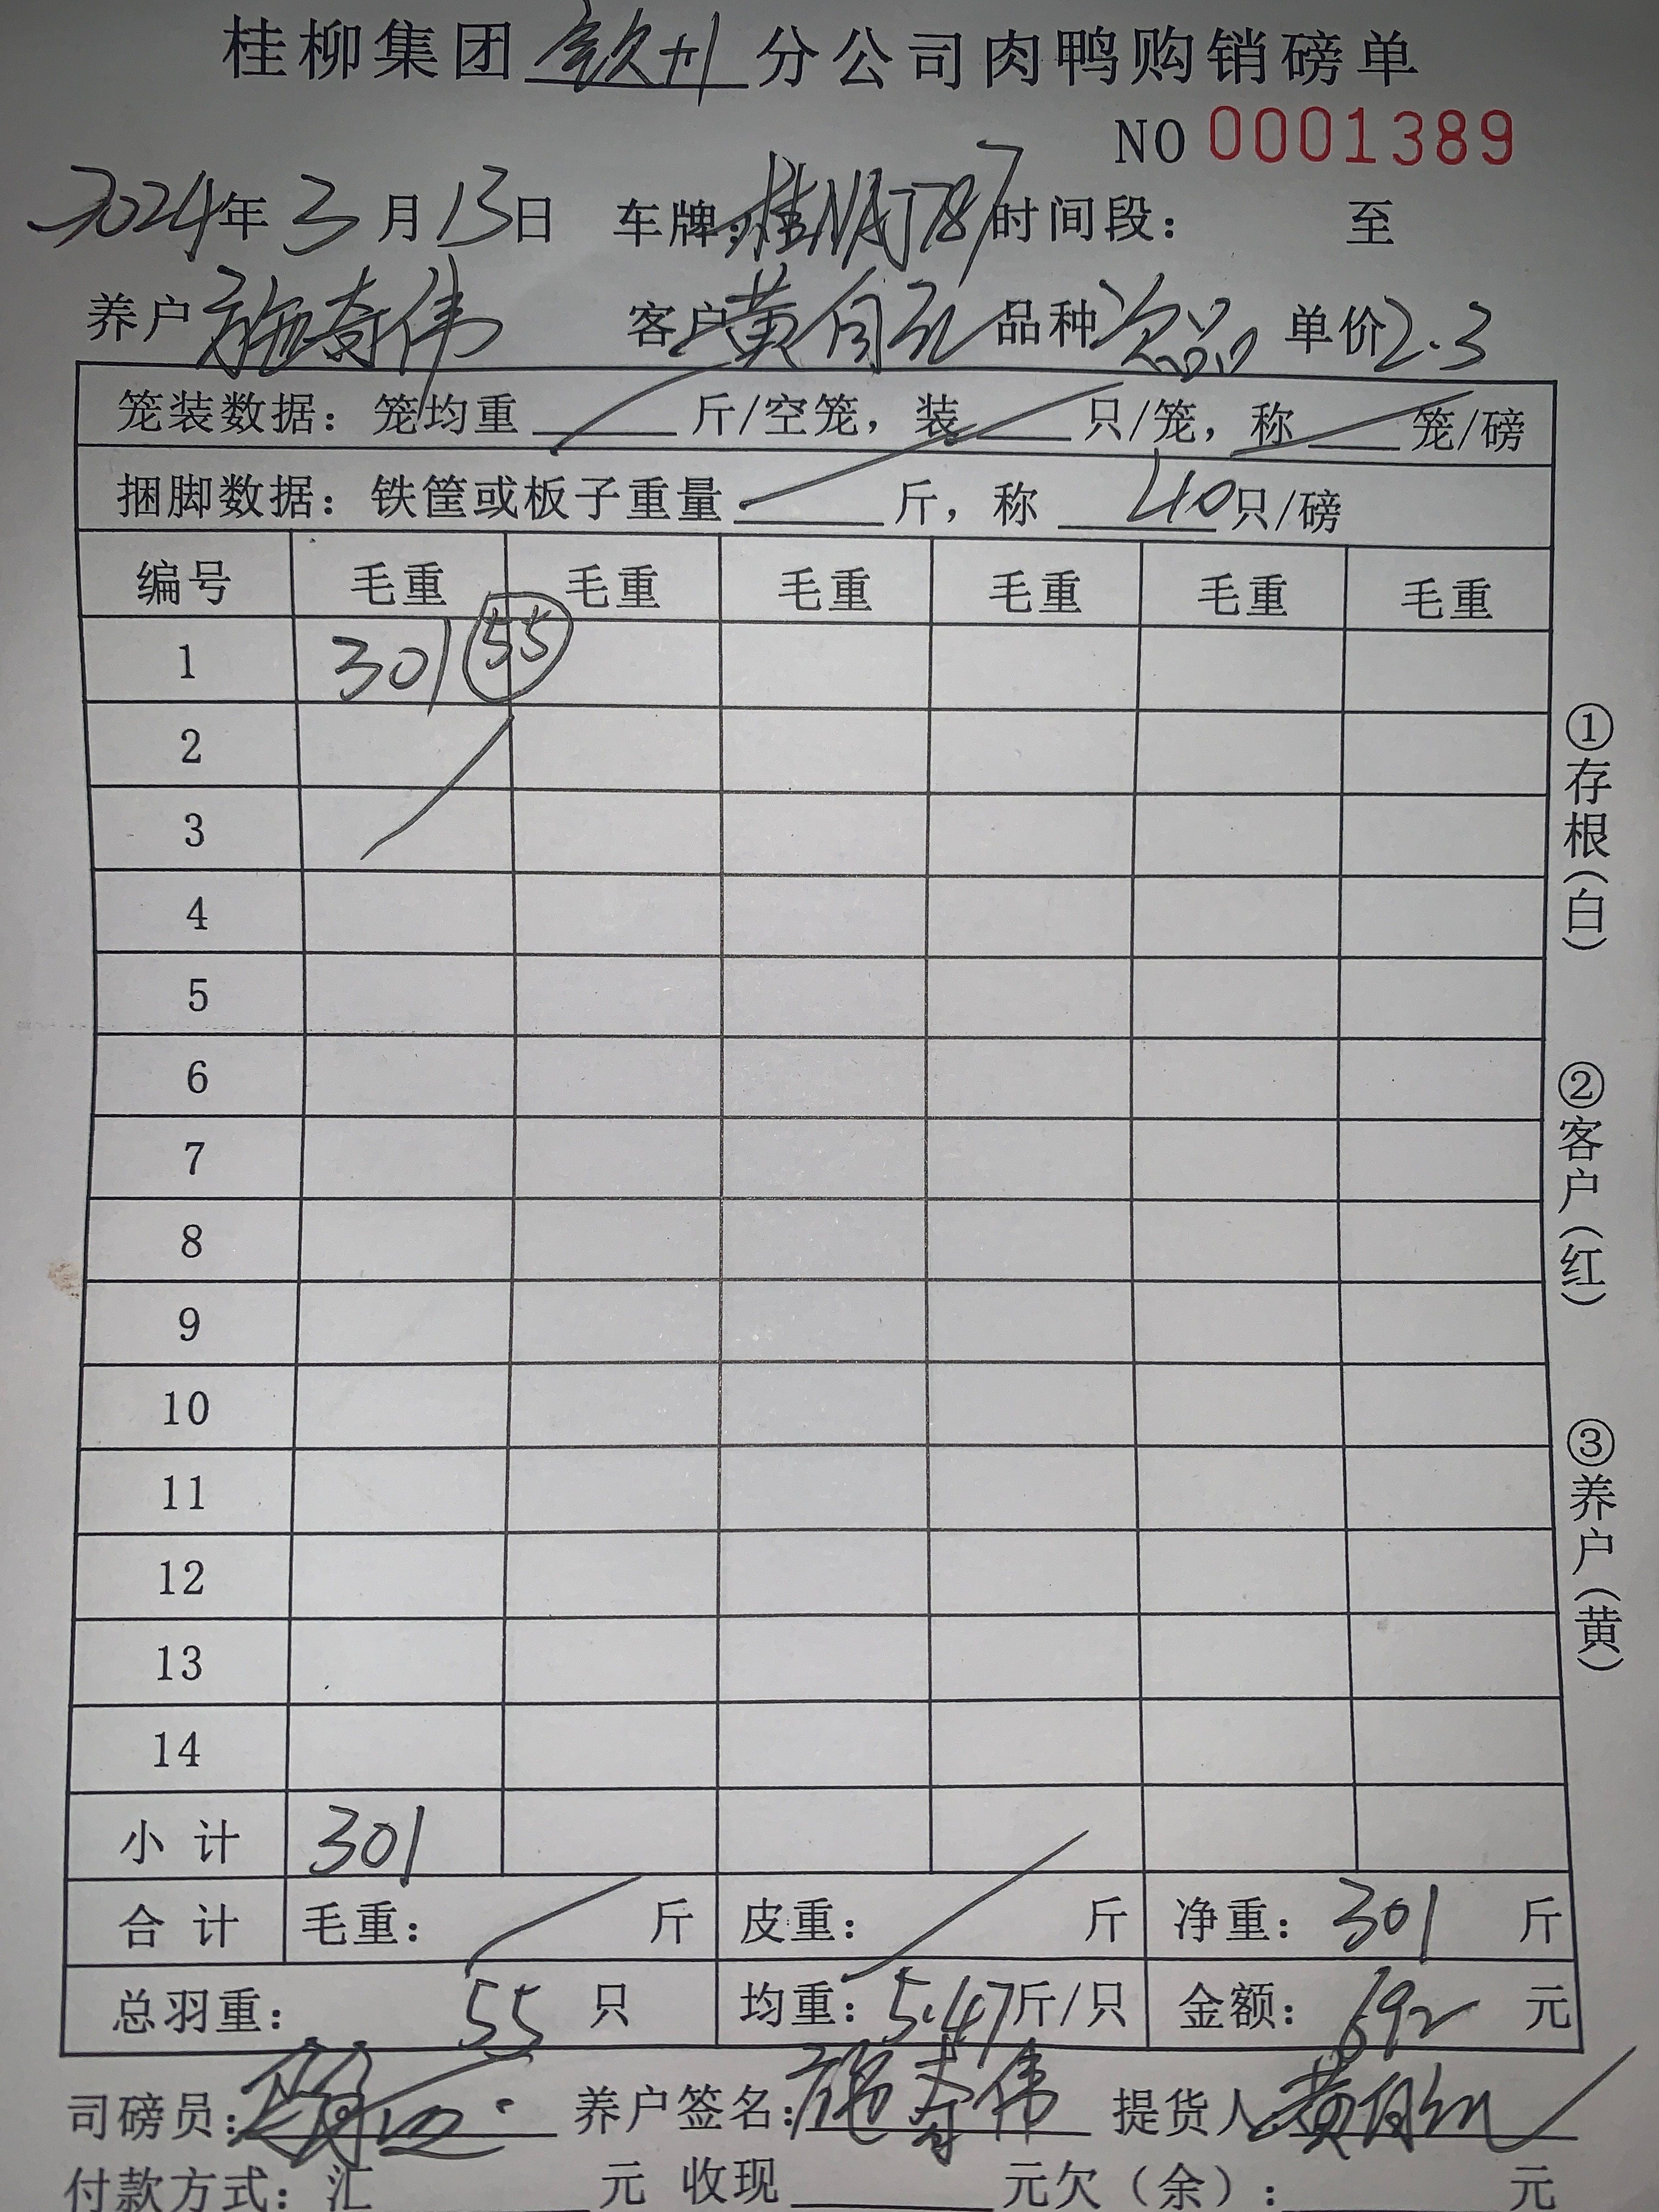 桂柳集团钦州分公司肉鸭购销磅单
NO 0001389
2024年3月13日 车牌: 时间段: 至
养户施奇伟 客户黄 品种次品 单价2.3
笼装数据: 笼均重 斤/空笼, 装 只/笼, 称 笼/磅
捆脚数据: 铁筐或板子重量 斤, 称 40只/磅
编号 毛重 毛重 毛重 毛重 毛重 毛重
1 301 55
2
3
4
5
6
7
8
9
10
11
12
13
14
小计 301
合计 毛重: 斤 皮重: 斤 净重: 301 斤
总羽重: 55 只 均重: 5.47斤/只 金额: 692 元
司磅员: 养户签名: 施奇伟 提货人: 黄
付款方式: 汇 元 收现 元欠(余): 元
①存根(白)
②客户(红)
③养户(黄)